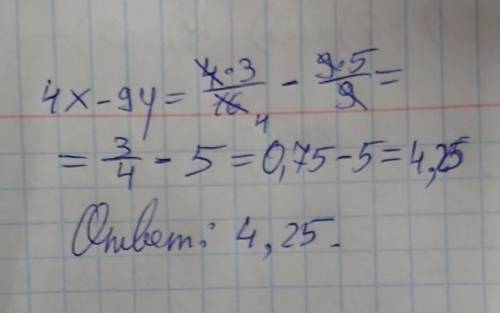 4x - 9y = 4·3/16 4 - 9·5/9 =
= 3/4 - 5 = 0,75 - 5 = 4,25
Ответ: 4,25.